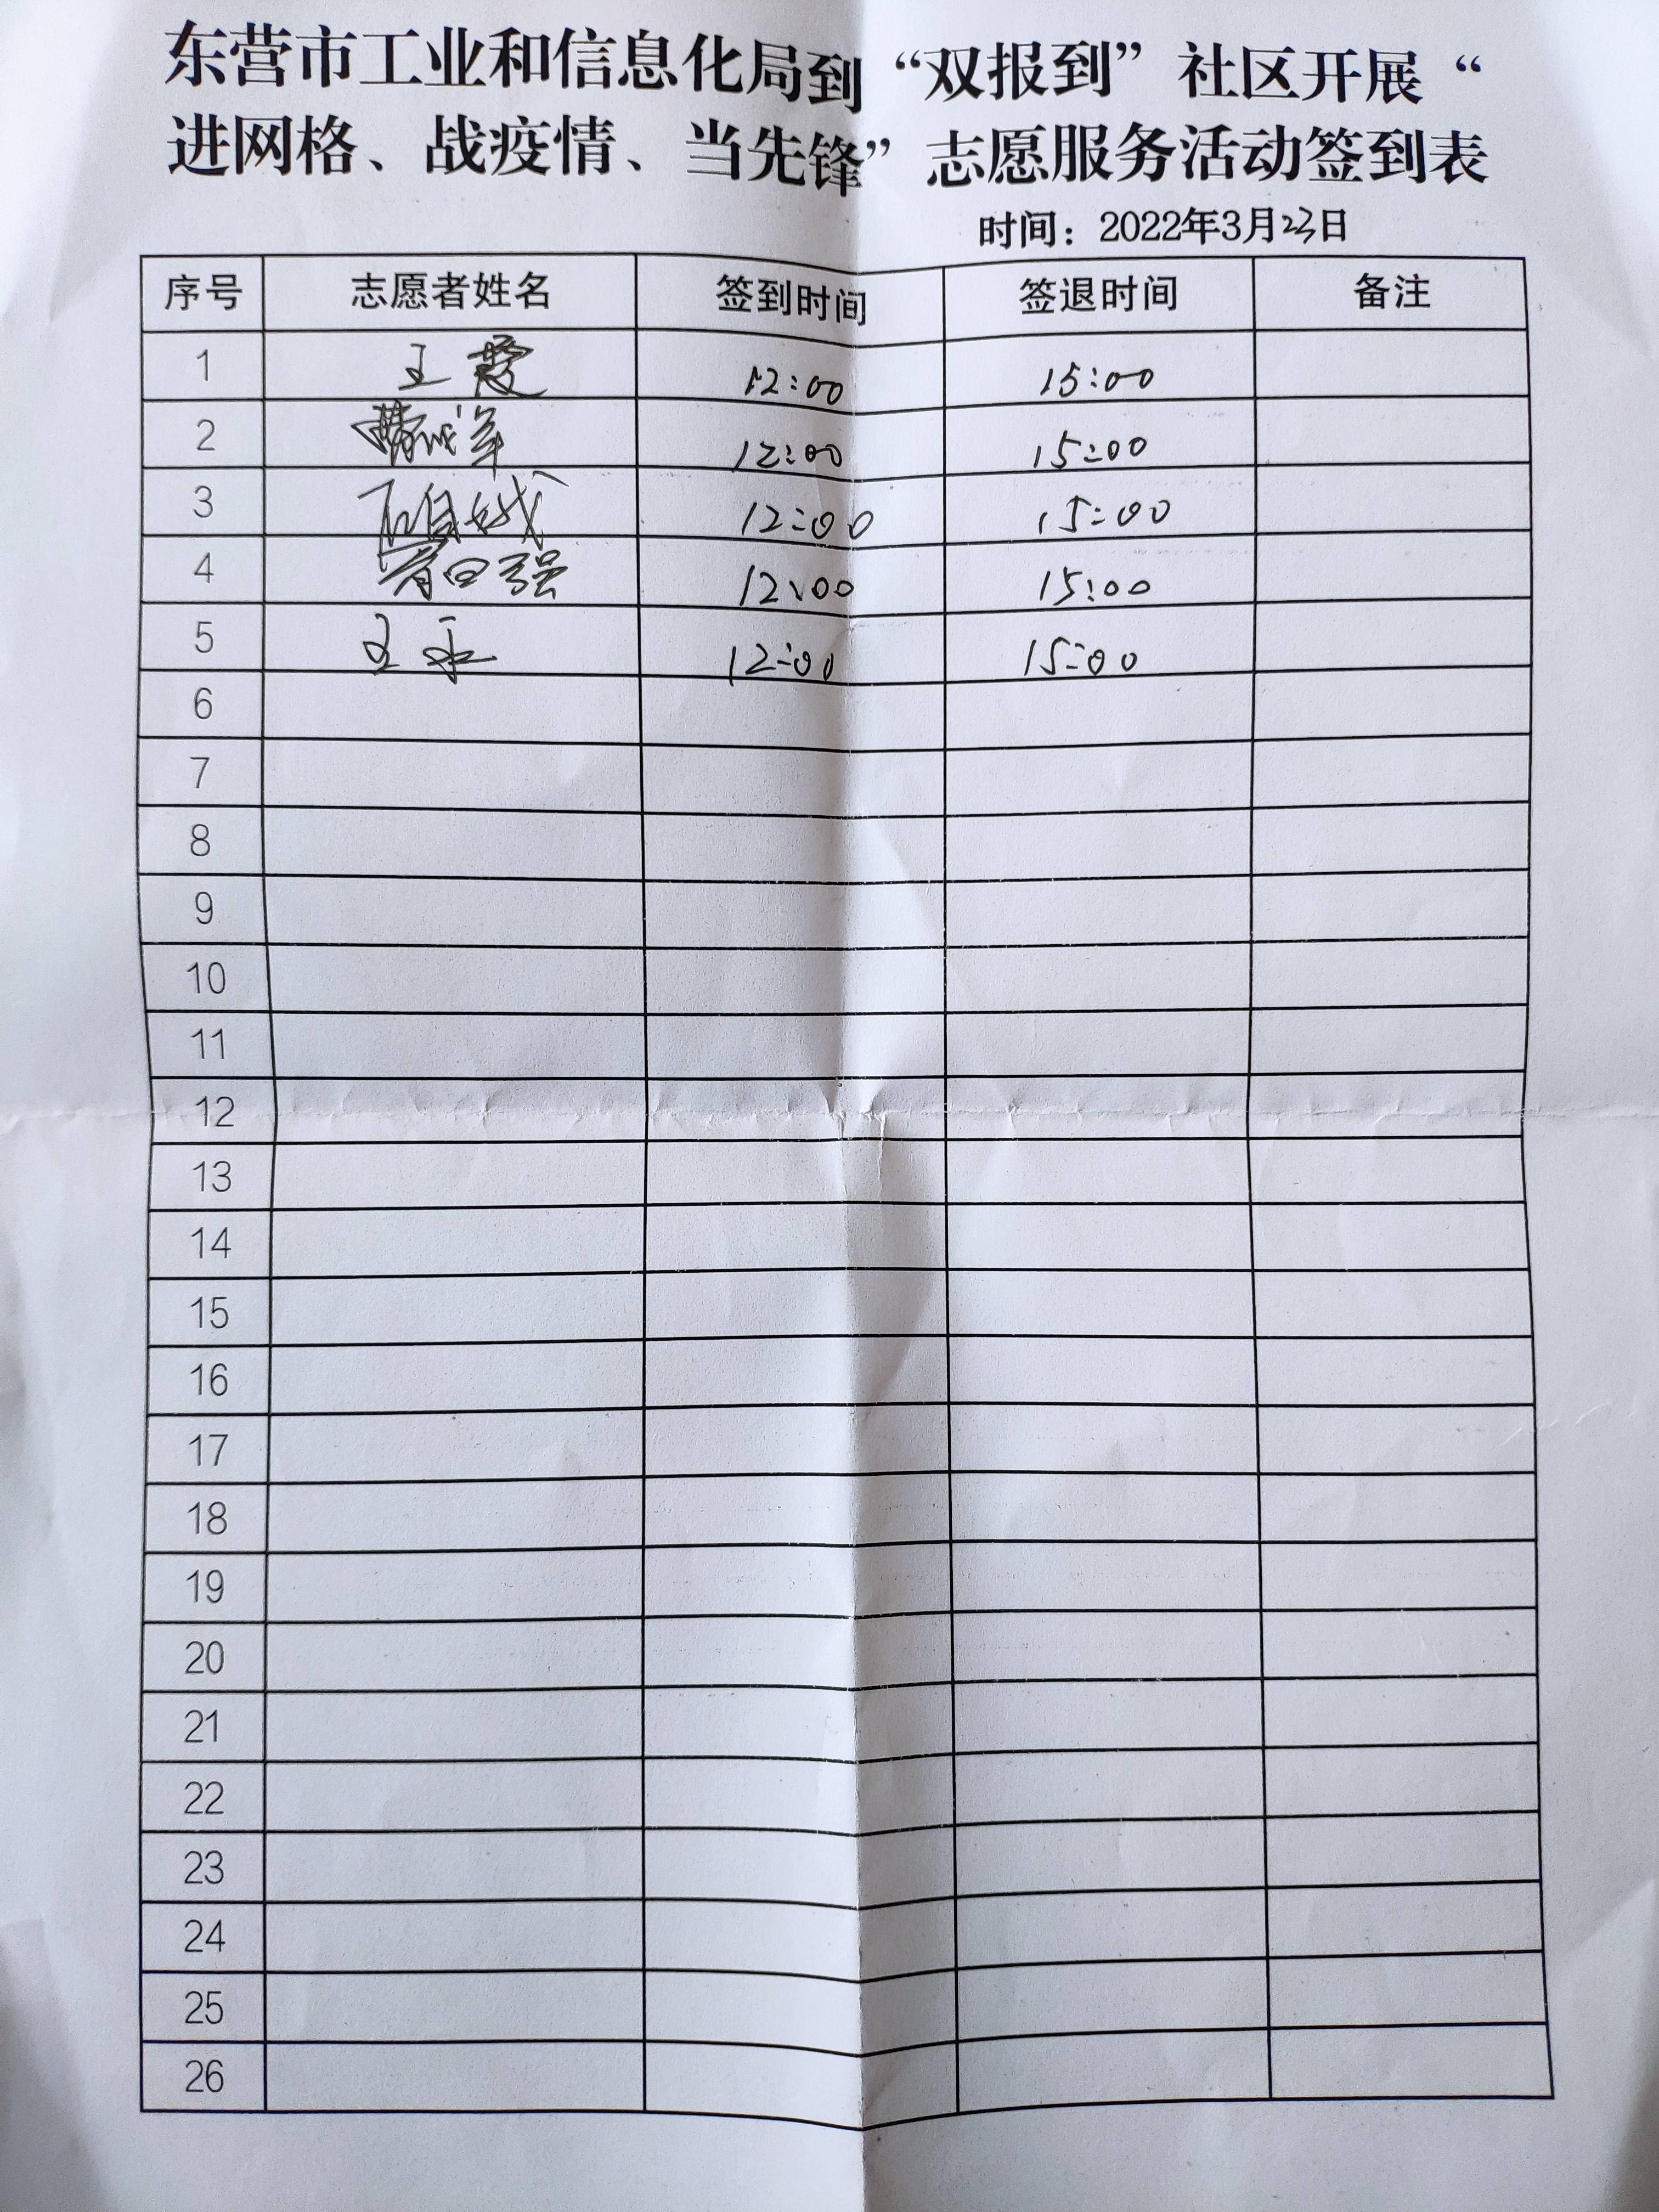 东营市工业和信息化局到“双报到”社区开展“
进网格、战疫情、当先锋”志愿服务活动签到表
时间：2022年3月23日
序号 志愿者姓名 签到时间 签退时间 备注
1 王霞 12:00 15:00
2 12:00 15:00
3 12:00 15:00
4 12:00 15:00
5 王 12:00 15:00
6
7
8
9
10
11
12
13
14
15
16
17
18
19
20
21
22
23
24
25
26